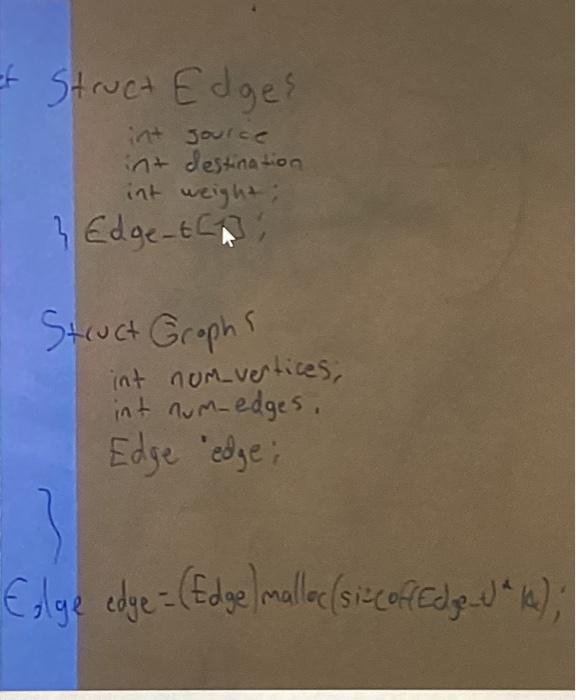 struct Edge {
int source
int destination
int weight;
} Edge_t[1];
Struct Graph {
int num_vertices;
int num_edges.
Edge *edge;
}
Edge edge = (Edge)malloc(sizeof(Edge_t)*